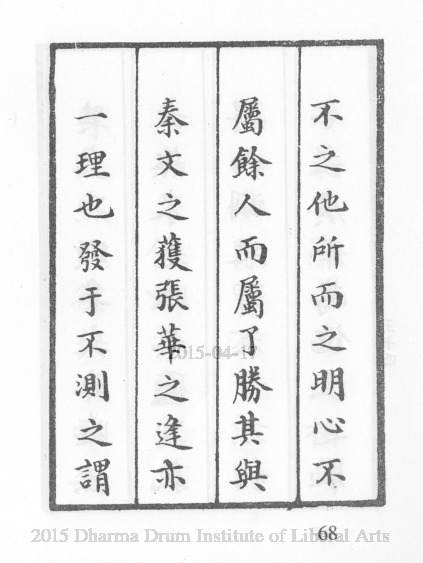 不之他所而之明心不
屬餘人而屬了勝其與
秦文之獲張華之逢亦
一理也發于不測之謂
2015-04-17
68
2015 Dharma Drum Institute of Liberal Arts